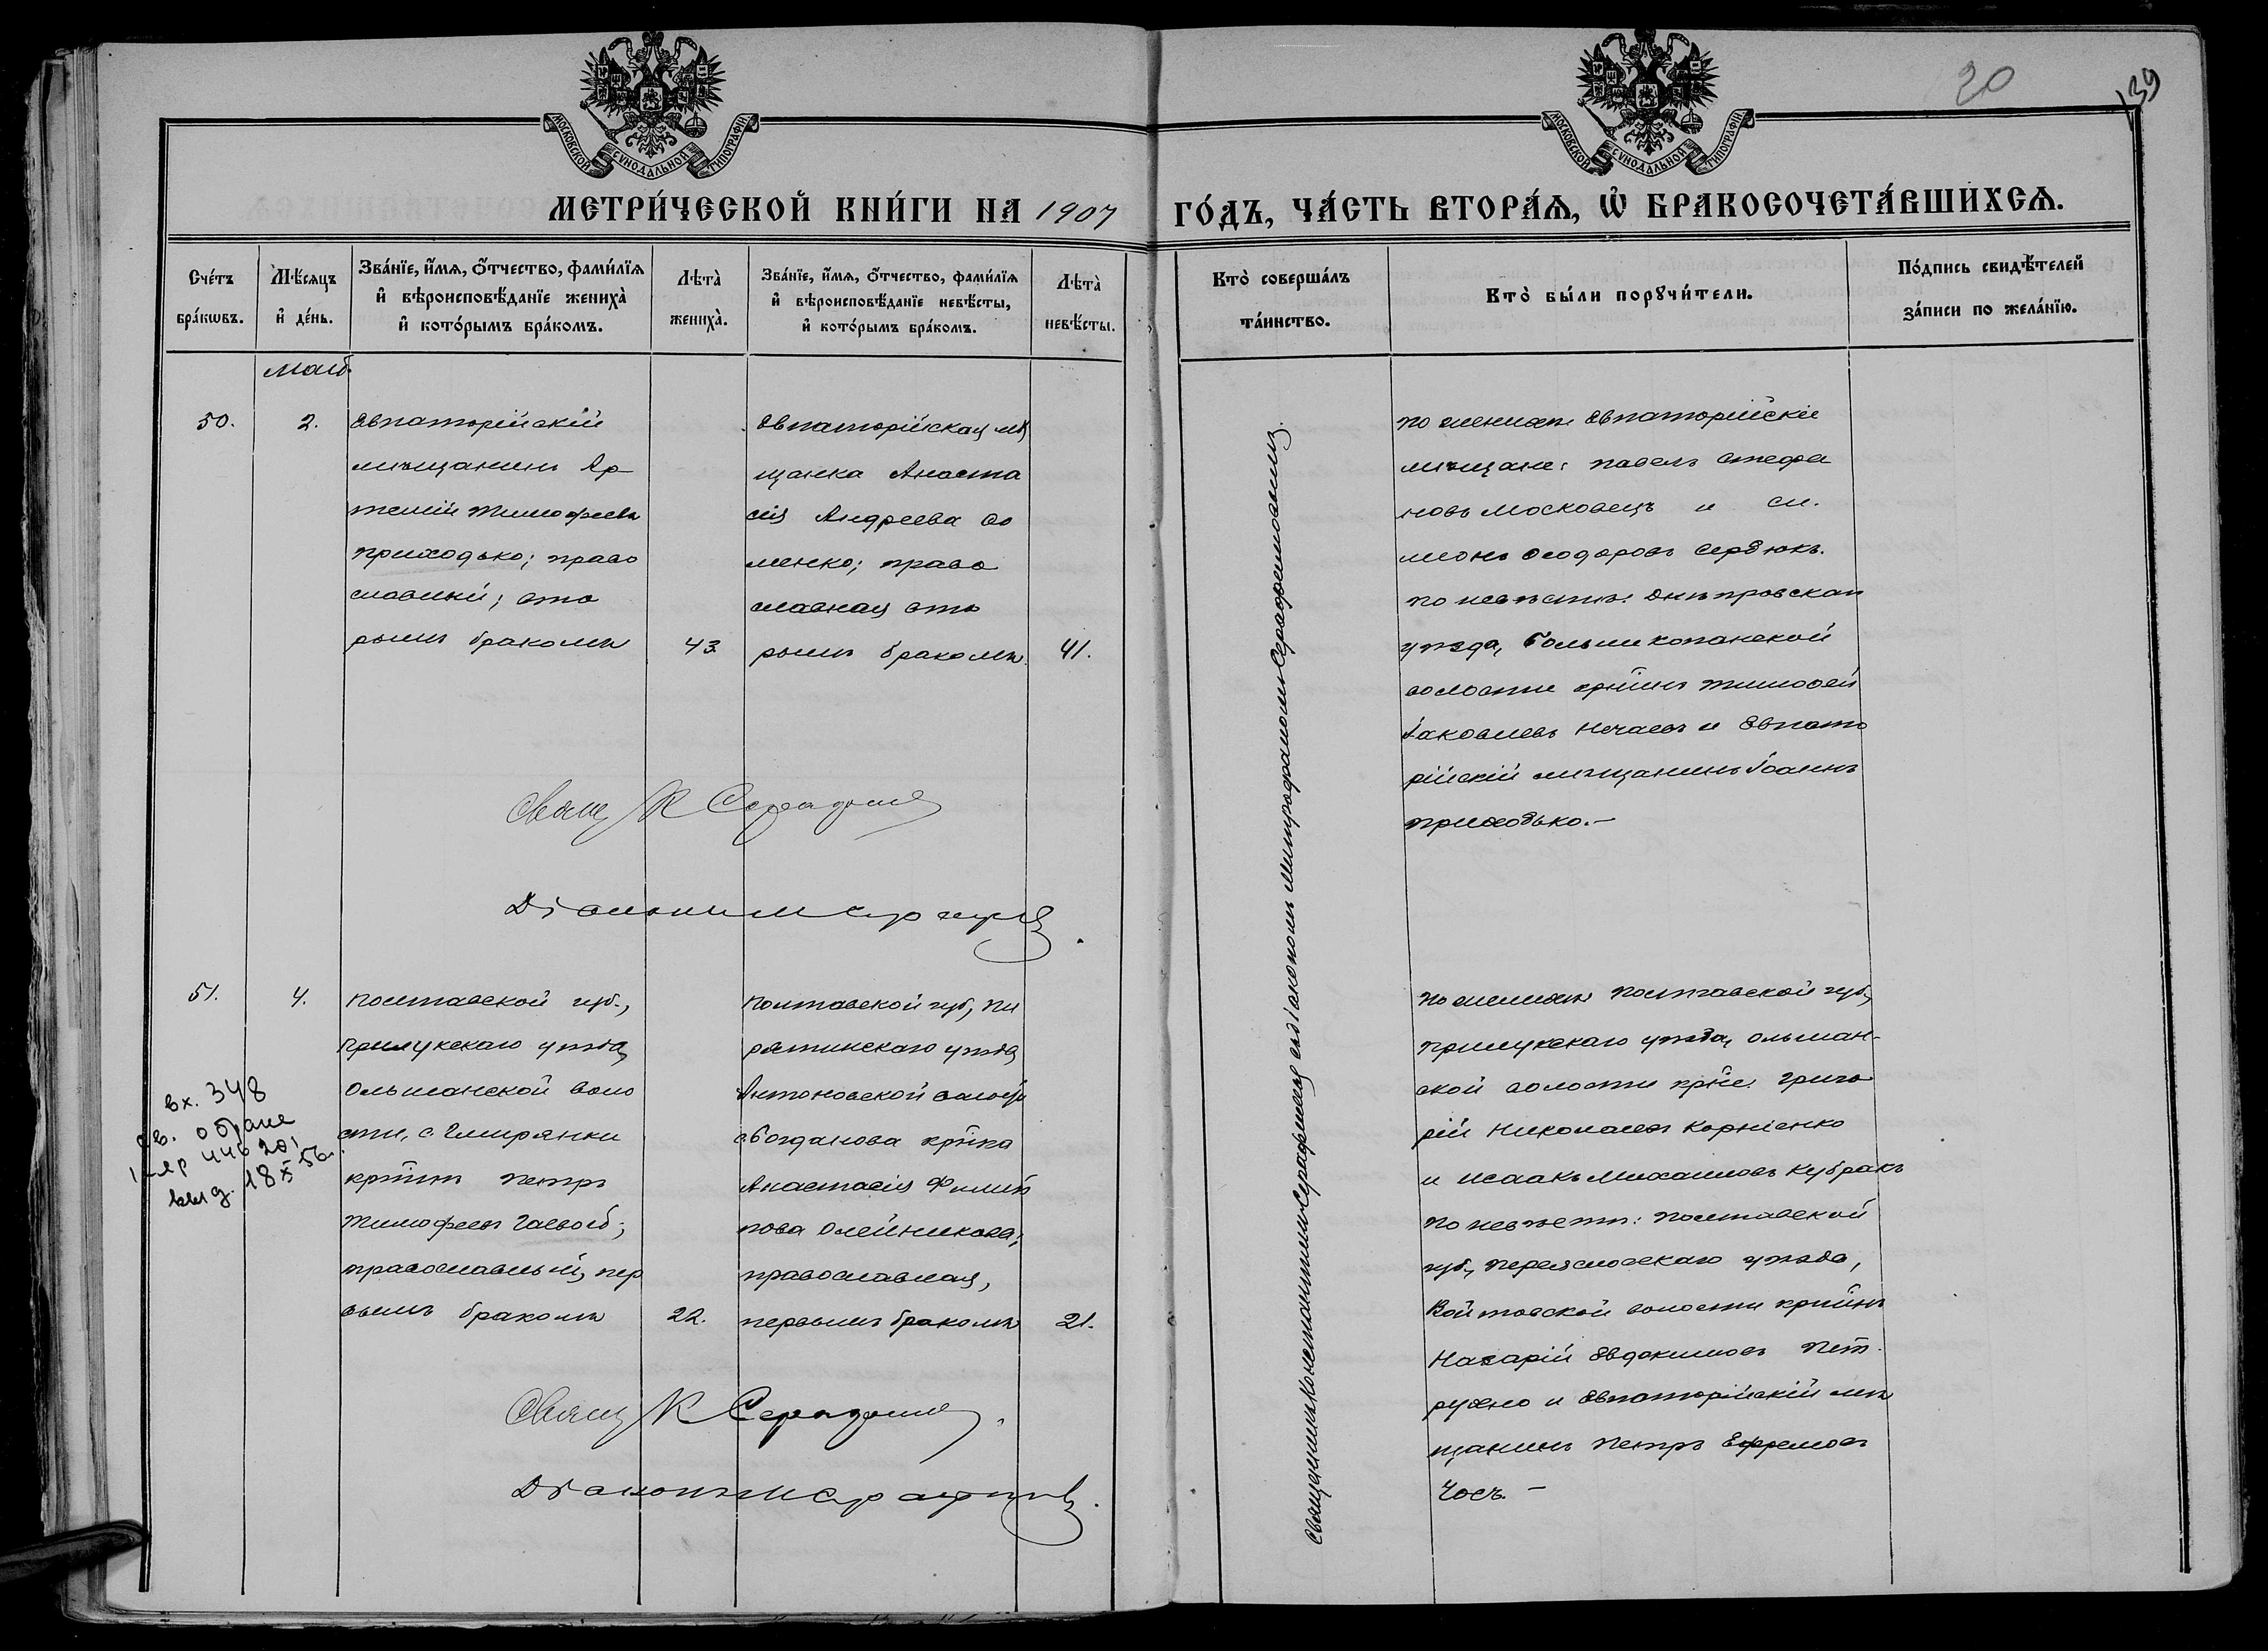 20
139
МОСКОВСКОЙ СѴНОДАЛЬНОЙ ТИПОГРАФІИ
МОСКОВСКОЙ СѴНОДАЛЬНОЙ ТИПОГРАФІИ
МЕТРИ́ЧЕСКОЙ КНИ́ГИ НА 1907 ГО́ДЪ, ЧА́СТЬ ВТОРА́Ѧ, Ѡ҆ БРАКОСОЧЕТА́ВШИХСѦ.
Сче́тъ бра́кѡвъ.
Мѣ́сѧцъ и҆ де́нь.
Зва́нїе, и҆́мѧ, ѻ҆́тчество, фами́лїѧ и҆ вѣроисповѣ́данїе жениха̀ и҆ кото́рымъ бра́комъ.
Лѣта̀ жениха̀.
Зва́нїе, и҆́мѧ, ѻ҆́тчество, фами́лїѧ и҆ вѣроисповѣ́данїе невѣ́сты, и҆ кото́рымъ бра́комъ.
Лѣта̀ невѣ́сты.
Кто̀ соверша́лъ та́инство.
Кто̀ бы́ли порꙋчи́тели.
По́дпись свидѣ́телей за́писи по жела́нїю.
50.
2.
Евпаторійскій
мѣщанинъ Ар
темій Тимофеевъ
Приходько; право
славный; вто
рымъ бракомъ
43
Евпаторійская мѣ
щанка Анаста
сія Андреева
менко; право
славная вто
рымъ бракомъ.
41.
По женихѣ Евпаторійскіе
мѣщане: Павелъ Стефа
новъ Московецъ и Си.
меонъ Ѳеодоровъ Сердюкъ.
По невѣстѣ: Днѣпровскаго
уѣзда, Большекопанской
волости кр-нинъ Тимоѳей
Іаковлевъ Нечаевъ и Евпато
рійскій мѣщанинъ Іоаннъ
Приходько.—
Свящ К Серафимовъ
Діаконъ М Серафимовъ.
51.
4.
Полтавской губ.,
Прилукскаго уѣзда,
Ольшанской воло
сти, с. Гмирянки
кр-нинъ Петръ
Тимофеевъ Гаевой;
православный, пер
вымъ бракомъ
22.
Полтавской губ, Пи
рятинскаго уѣзда
Антоновской волости
с. Богданова кр-нка
Анастасія Филип
пова Олейникова;
православная,
первымъ бракомъ
21.
По женихѣ Полтавской губ,
Прилукскаго уѣзда, Ольшан-
ской волости кр-не: Григо
рій Николаевъ Корніенко
и Исаакъ Михаиловъ Кубракъ
По невѣстѣ: Полтавской
губ, Переяславскаго уѣзда,
Войтовской волости кр-нинъ
Назарій Евдокимовъ Пет-
рухно и Евпаторійскій мѣ
щанинъ Петръ Ефремовъ
Чосъ.—
Свящ К Серафимовъ.
Діаконъ М Серафимовъ.
Священникъ Константинъ Серафимовъ съ діакономъ Митрофаномъ Серафимовымъ.
вх. 348
св. о браке
выд. 18 X 56